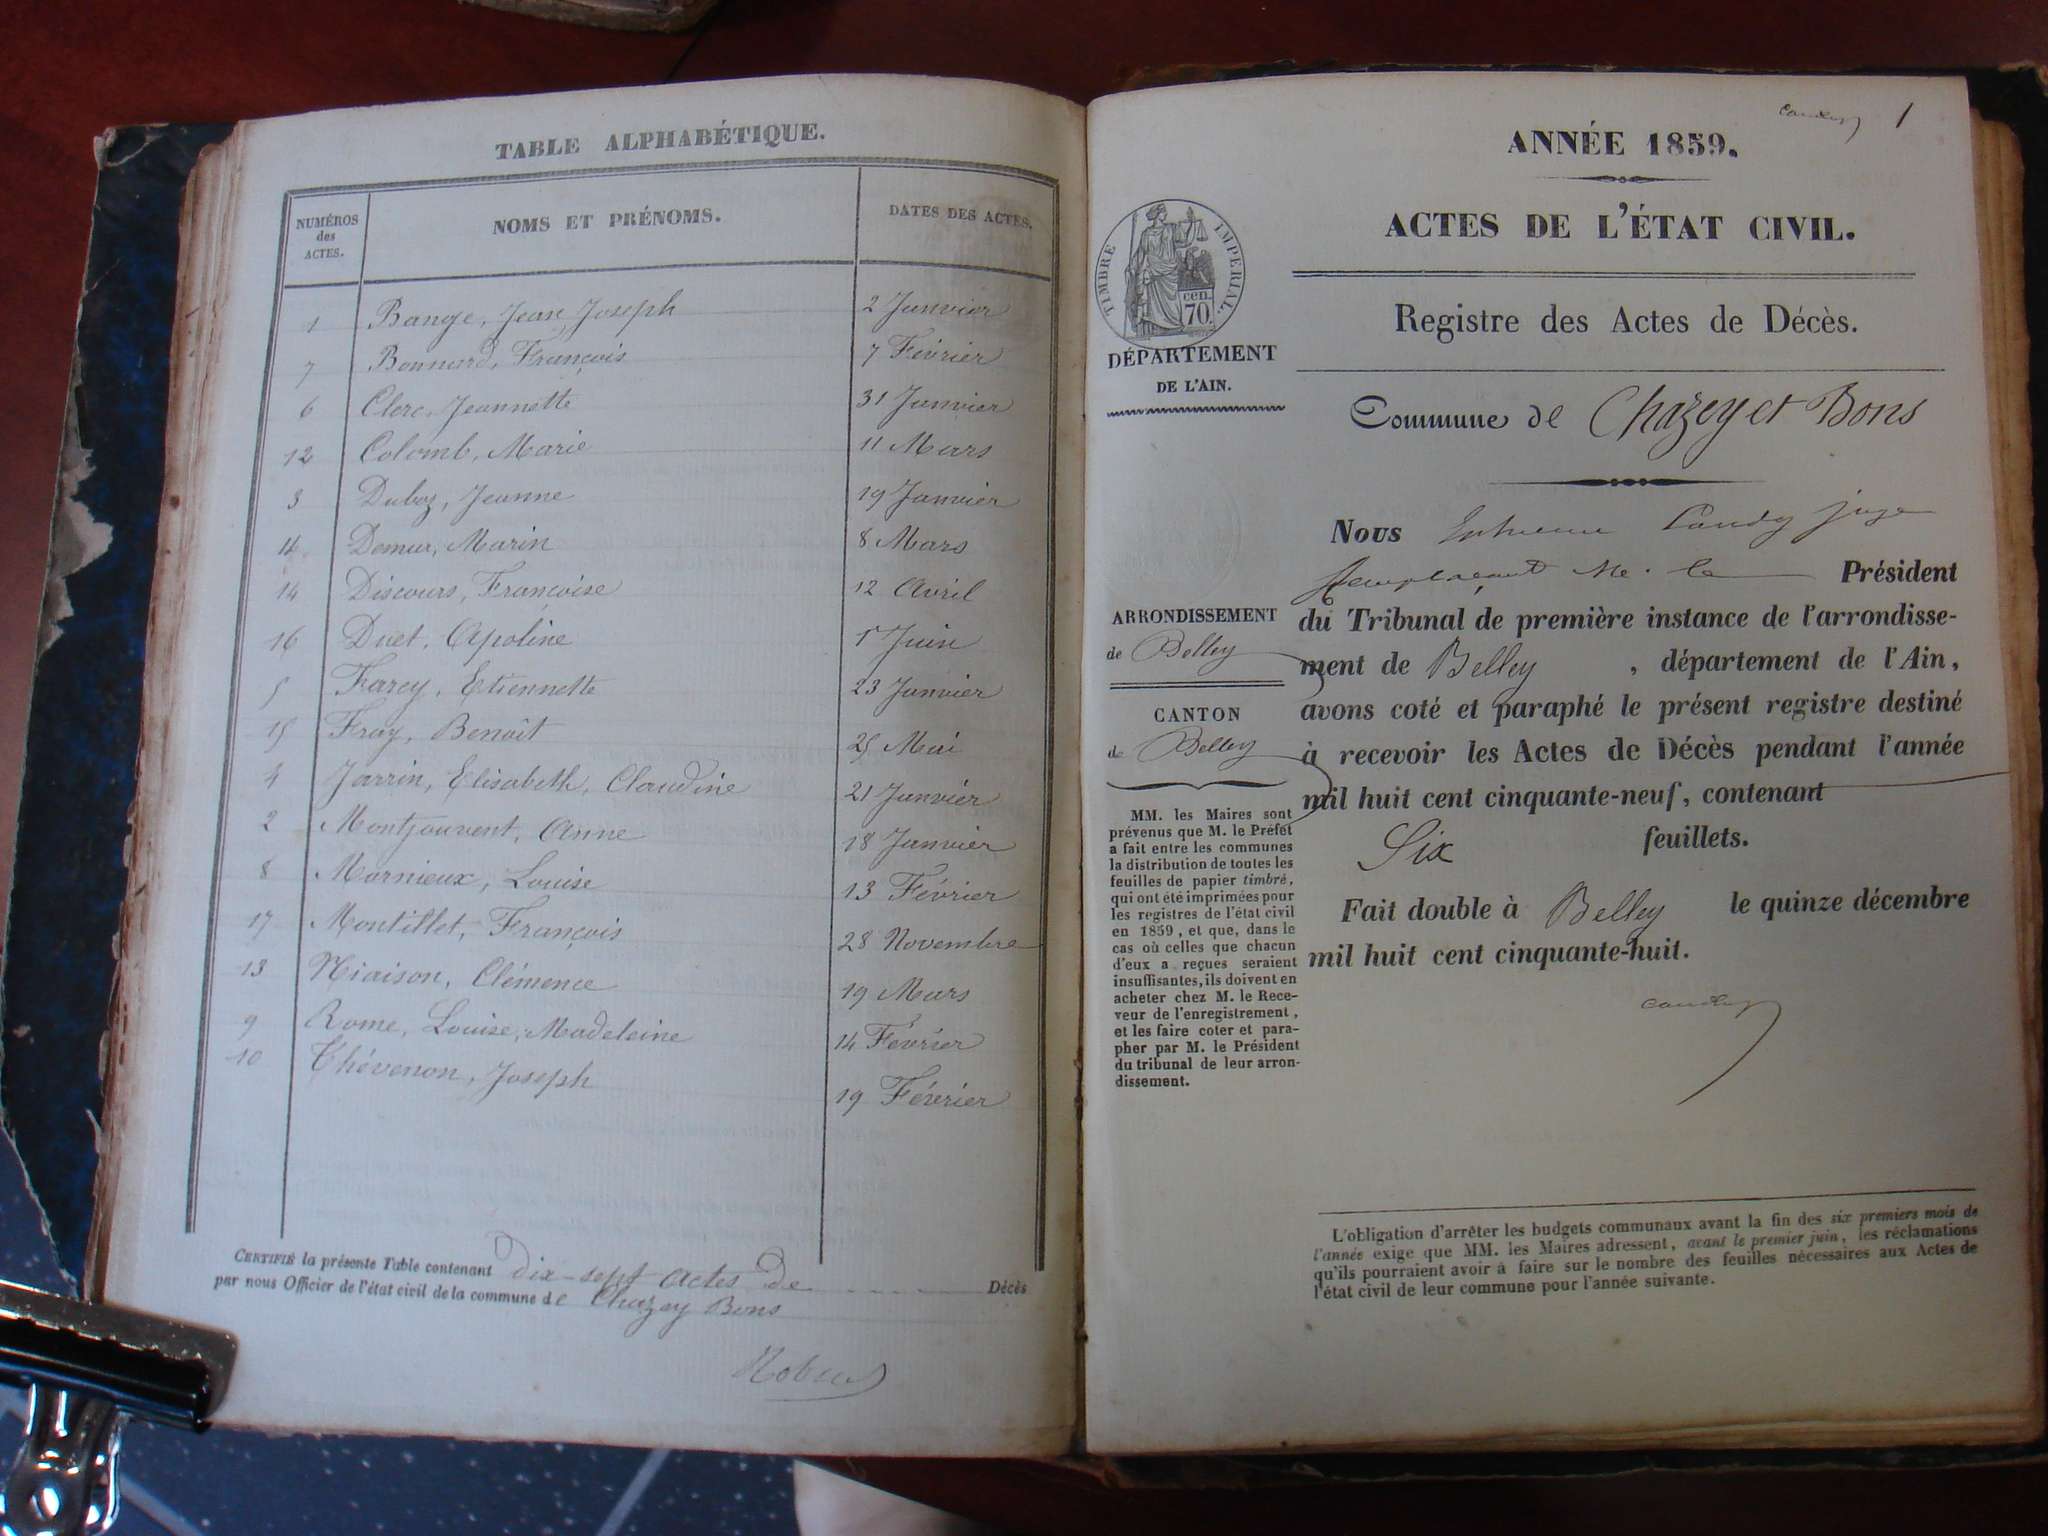 TABLE ALPHABÉTIQUE.
NUMÉROS des ACTES. NOMS ET PRÉNOMS. DATES DES ACTES.
1 Bange, Jean Joseph 2 Janvier
7 Bonnard, François 7 Février
6 Clerc, Jeannette 31 Janvier
12 Colomb, Marie 11 Mars
3 Duboz, Jeanne 19 Janvier
Demeur, Marin 8 Mars
14 Discours, Françoise 12 Avril
16 Duet, Apoline 1r Juin
5 Farcy, Etiennette 23 Janvier
15 Fray, Benoît 25 Mai
4 Jarrin, Elisabeth, Claudine 21 Janvier
2 Montjouvent, Anne 18 Janvier
8 Mornieux, Louise 13 Février
17 Montillet, François 28 Novembre
13 Niaison, Clémence 19 Mars
9 Rome, Louise, Madeleine 14 Février
10 Thévenon, Joseph 19 Février
CERTIFIÉ la présente Table contenant dix-sept actes de Décès
par nous Officier de l'état civil de la commune de Chazey Bons
1
ANNÉE 1859.
ACTES DE L'ÉTAT CIVIL.
TIMBRE IMPERIAL
cen.
70.
Registre des Actes de Décès.
DÉPARTEMENT
DE L'AIN.
Commune de Chazey et Bons
Nous juge
remplaçant Mr. le Président
du Tribunal de première instance de l'arrondisse-
ment de Belley, département de l'Ain,
avons coté et paraphé le présent registre destiné
à recevoir les Actes de Décès pendant l'année
mil huit cent cinquante-neuf, contenant
Six feuillets.
Fait double à Belley le quinze décembre
mil huit cent cinquante-huit.
ARRONDISSEMENT
de Belley
CANTON
de Belley
MM. les Maires sont
prévenus que M. le Préfet
a fait entre les communes
la distribution de toutes les
feuilles de papier timbré,
qui ont été imprimées pour
les registres de l'état civil
en 1859, et que, dans le
cas où celles que chacun
d'eux a reçues seraient
insuffisantes, ils doivent en
acheter chez M. le Rece-
veur de l'enregistrement,
et les faire coter et para-
pher par M. le Président
du tribunal de leur arron-
dissement.
L'obligation d'arrêter les budgets communaux avant la fin des six premiers mois de
l'année exige que MM. les Maires adressent, avant le premier juin, les réclamations
qu'ils pourraient avoir à faire sur le nombre des feuilles nécessaires aux Actes de
l'état civil de leur commune pour l'année suivante.